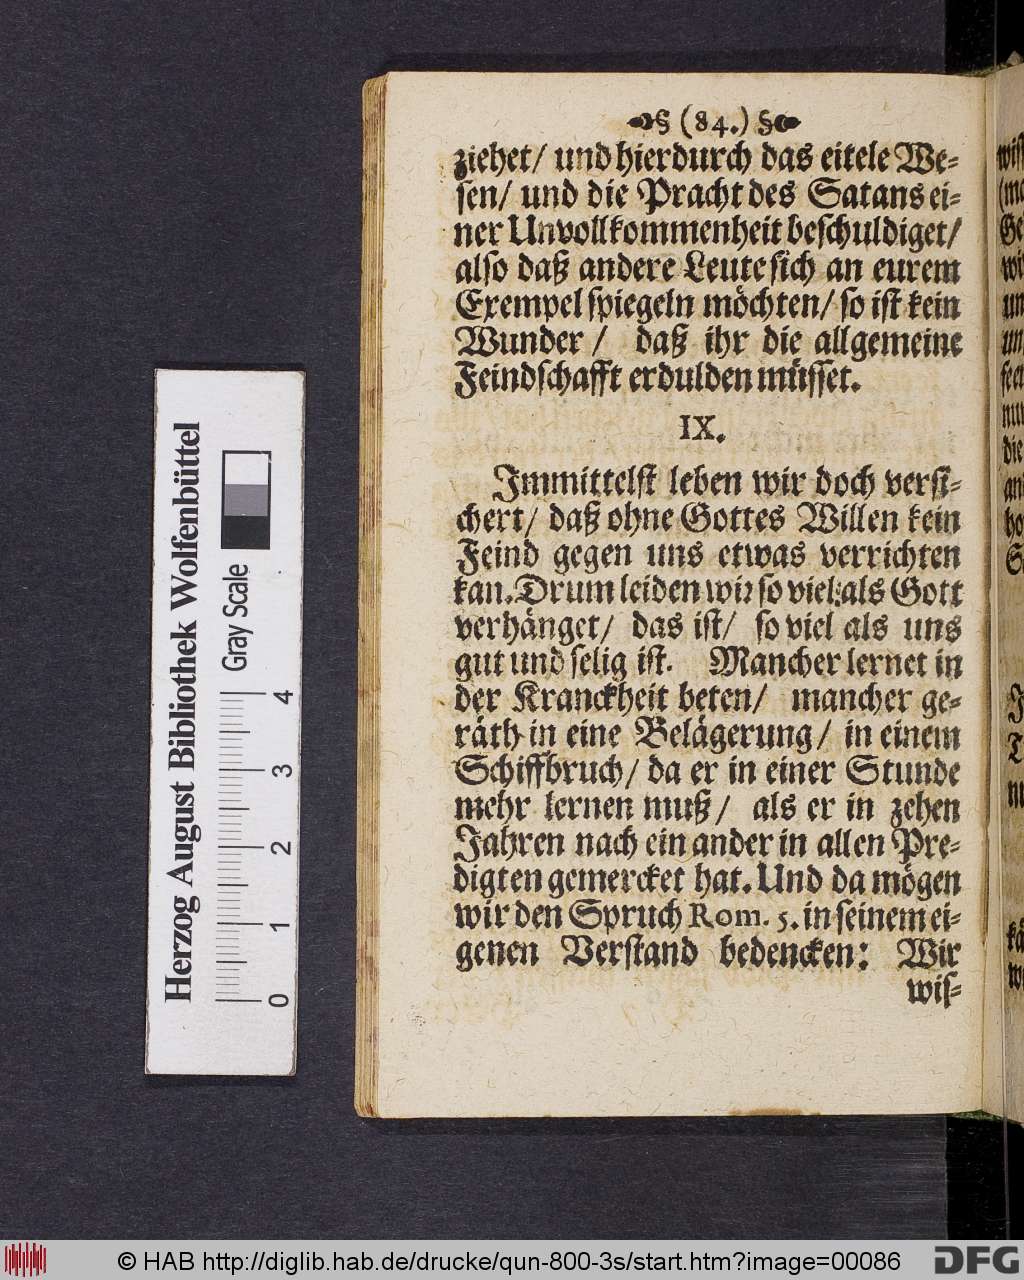 (84.)
ziehet/ und hierdurch das eitele We-
sen/ und die Pracht des Satans ei-
ner Unvollkommenheit beschuldiget/
also daß andere Leute sich an eurem
Exempel spiegeln möchten/ so ist kein
Wunder / daß ihr die allgemeine
Feindschafft erdulden müsset.
IX.
Immittelst leben wir doch versi-
chert/ daß ohne Gottes Willen kein
Feind gegen uns etwas verrichten
kan. Drum leiden wir so viel als Gott
verhänget/ das ist/ so viel als uns
gut und selig ist. Mancher lernet in
der Kranckheit beten/ mancher ge-
räth in eine Belägerung/ in einem
Schiffbruch/ da er in einer Stunde
mehr lernen muß/ als er in zehen
Jahren nach ein ander in allen Pre-
digten gemercket hat. Und da mögen
wir den Spruch Rom. 5. in seinem ei-
genen Verstand bedencken: Wir
wis-
Herzog August Bibliothek Wolfenbüttel
Gray Scale
0 1 2 3 4
© HAB http://diglib.hab.de/drucke/qun-800-3s/start.htm?image=00086
DFG